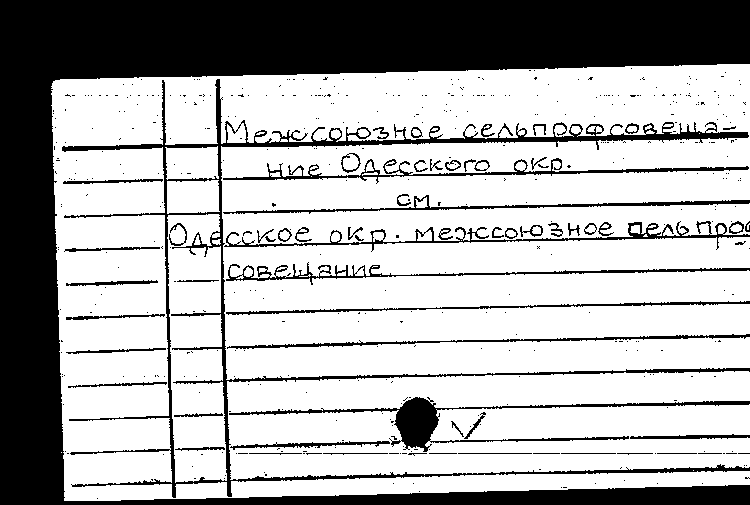 Межсоюзное сельпрофсовеща-
ние Одесского окр.
см.
Одесское окр. межсоюзное сельпроф
совещание